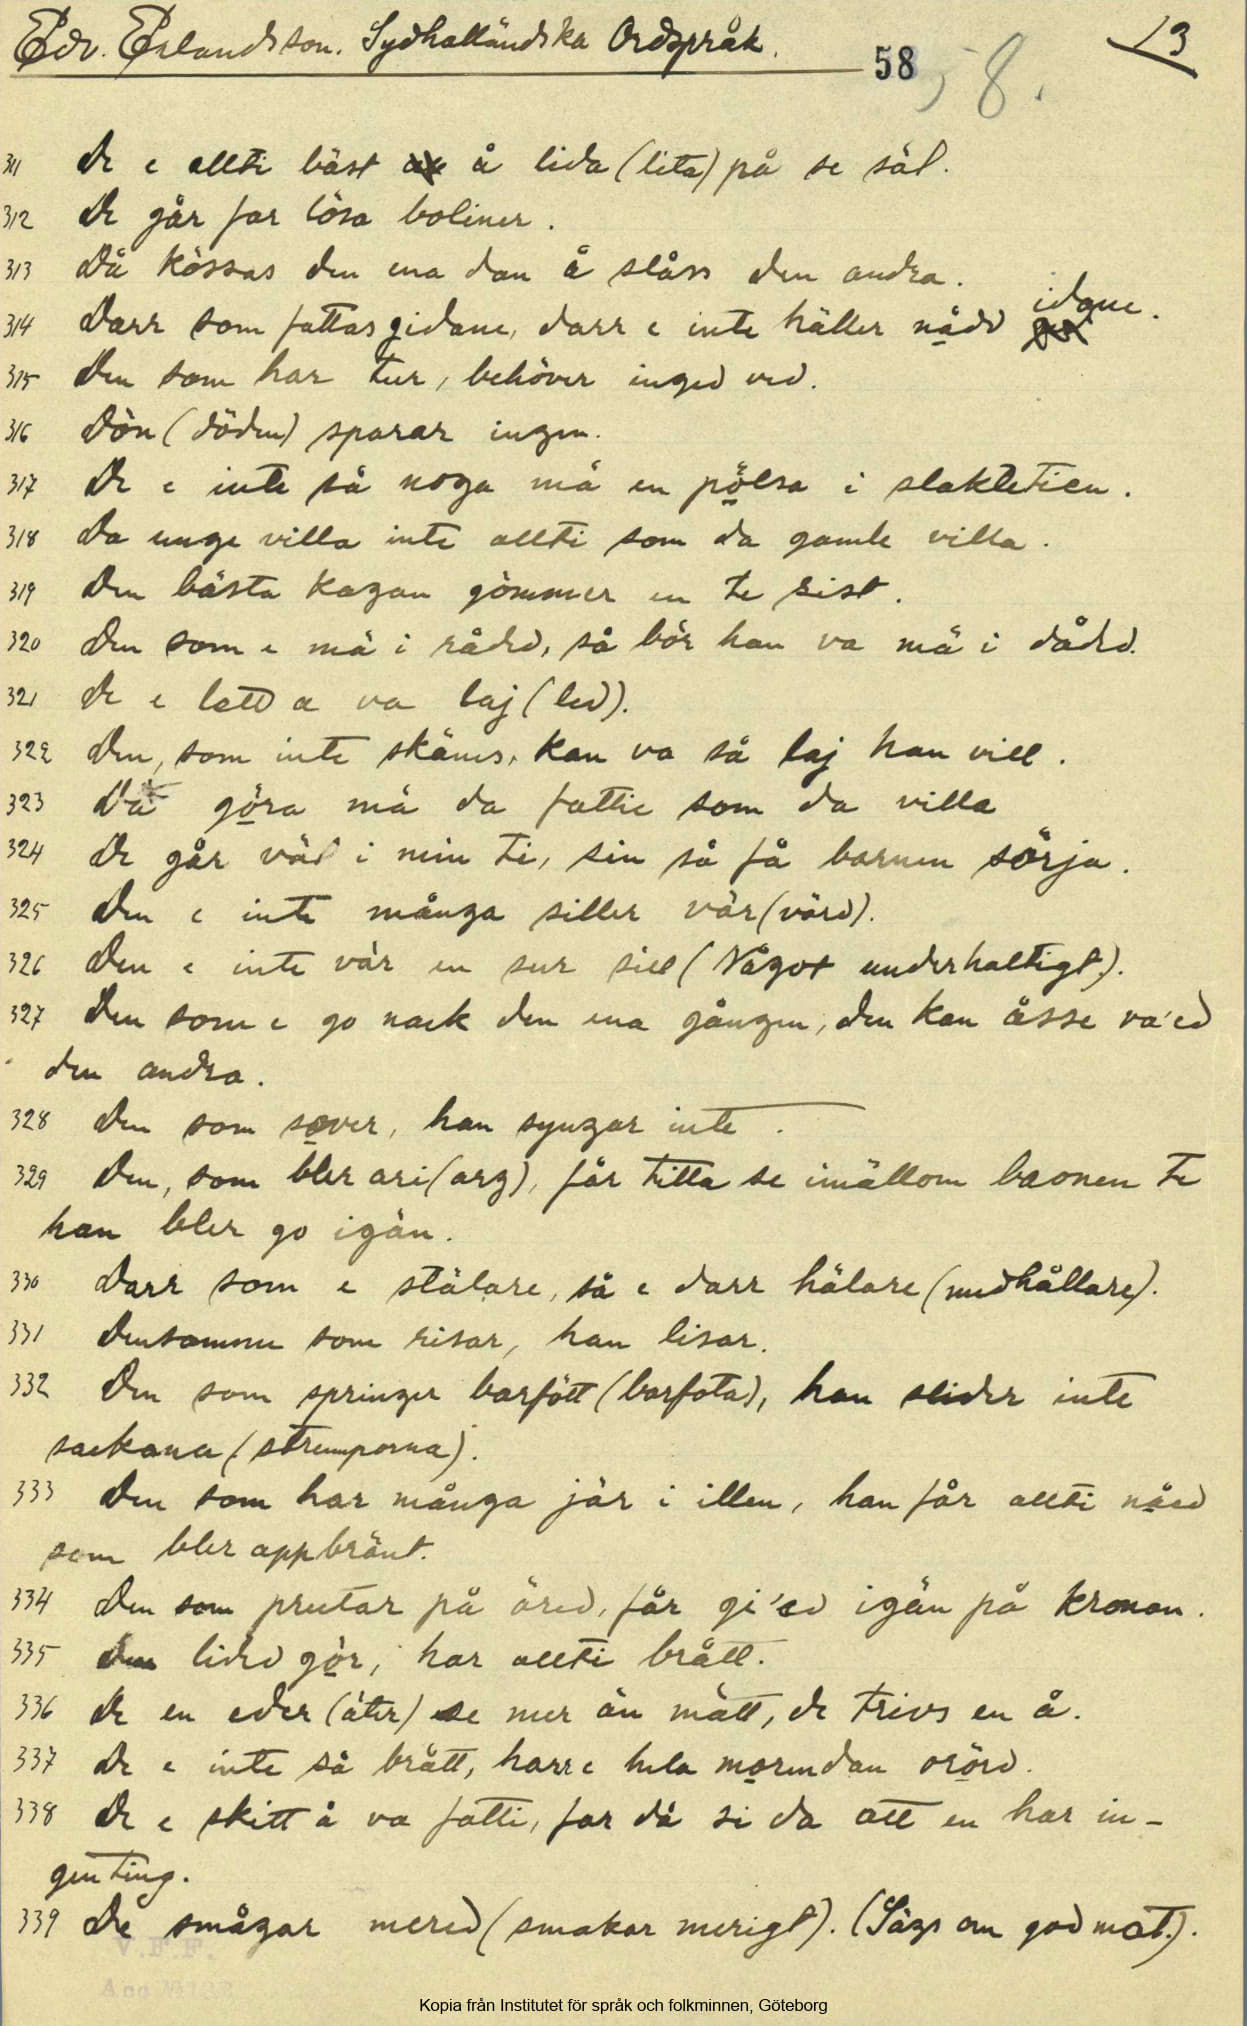 Edv. Erlandsson. Sydhalländska Ordspråk. 58 58. 13
311 De e allti bäst å lida (lita) på se säl.
312 De går far lösa boliner.
313 Då kössas den ena dan å slåss den andra.
314 Darr som fattas gidane, darr e inte häller nådd idane.
315 Den som har tur, behöver inged ved.
316 Dön (döden) sparar ingen.
317 De e inte så noga mä en pölsa i slaktetien.
318 Da unge villa inte allti som da gamle villa.
319 Den bästa kagan gömmer en te sist.
320 Den som e mä i råded, så bör han va mä i dåded.
321 De e lett a va laj (led).
322 Den, som inte skäms, kan va så laj han vill.
323 Da göra mä da fattie som da villa
324 De går väl i min ti, sin så få barnen sörja.
325 Den e inte många siller vär (värd).
326 Den e inte vär en sur sill (Något underhaltigt.).
327 Den som e go nack den ena gången, den kan åsse va'ed
den andra.
328 Den som sover, han syngar inte.
329 Den, som bler ari (arg), får titta se imällom baonen te
han bler go igän.
330 Darr som e stälare, så e darr hälare (medhållare).
331 Densamme som risar, han lisar.
332 Den som springer barfött (barfota), han slider inte
sackana (strumporna).
333 Den som har många jär i illen, han får allti nåed
som bler appbränt.
334 Den som prutar på öred, får gi'ed igän på kronan.
335 Den lided gör, har allti brått.
336 De en eder (äter) se mer än mätt, de trivs en å.
337 De e inte så brått, harr e hela morendan orörd.
338 De e skitt å va fatti, far då si da att en har in-
genting.
339 De smågar mered (smakar merigt). (Säges om god mat.).
V.F.F.
Kopia från Institutet för språk och folkminnen, Göteborg